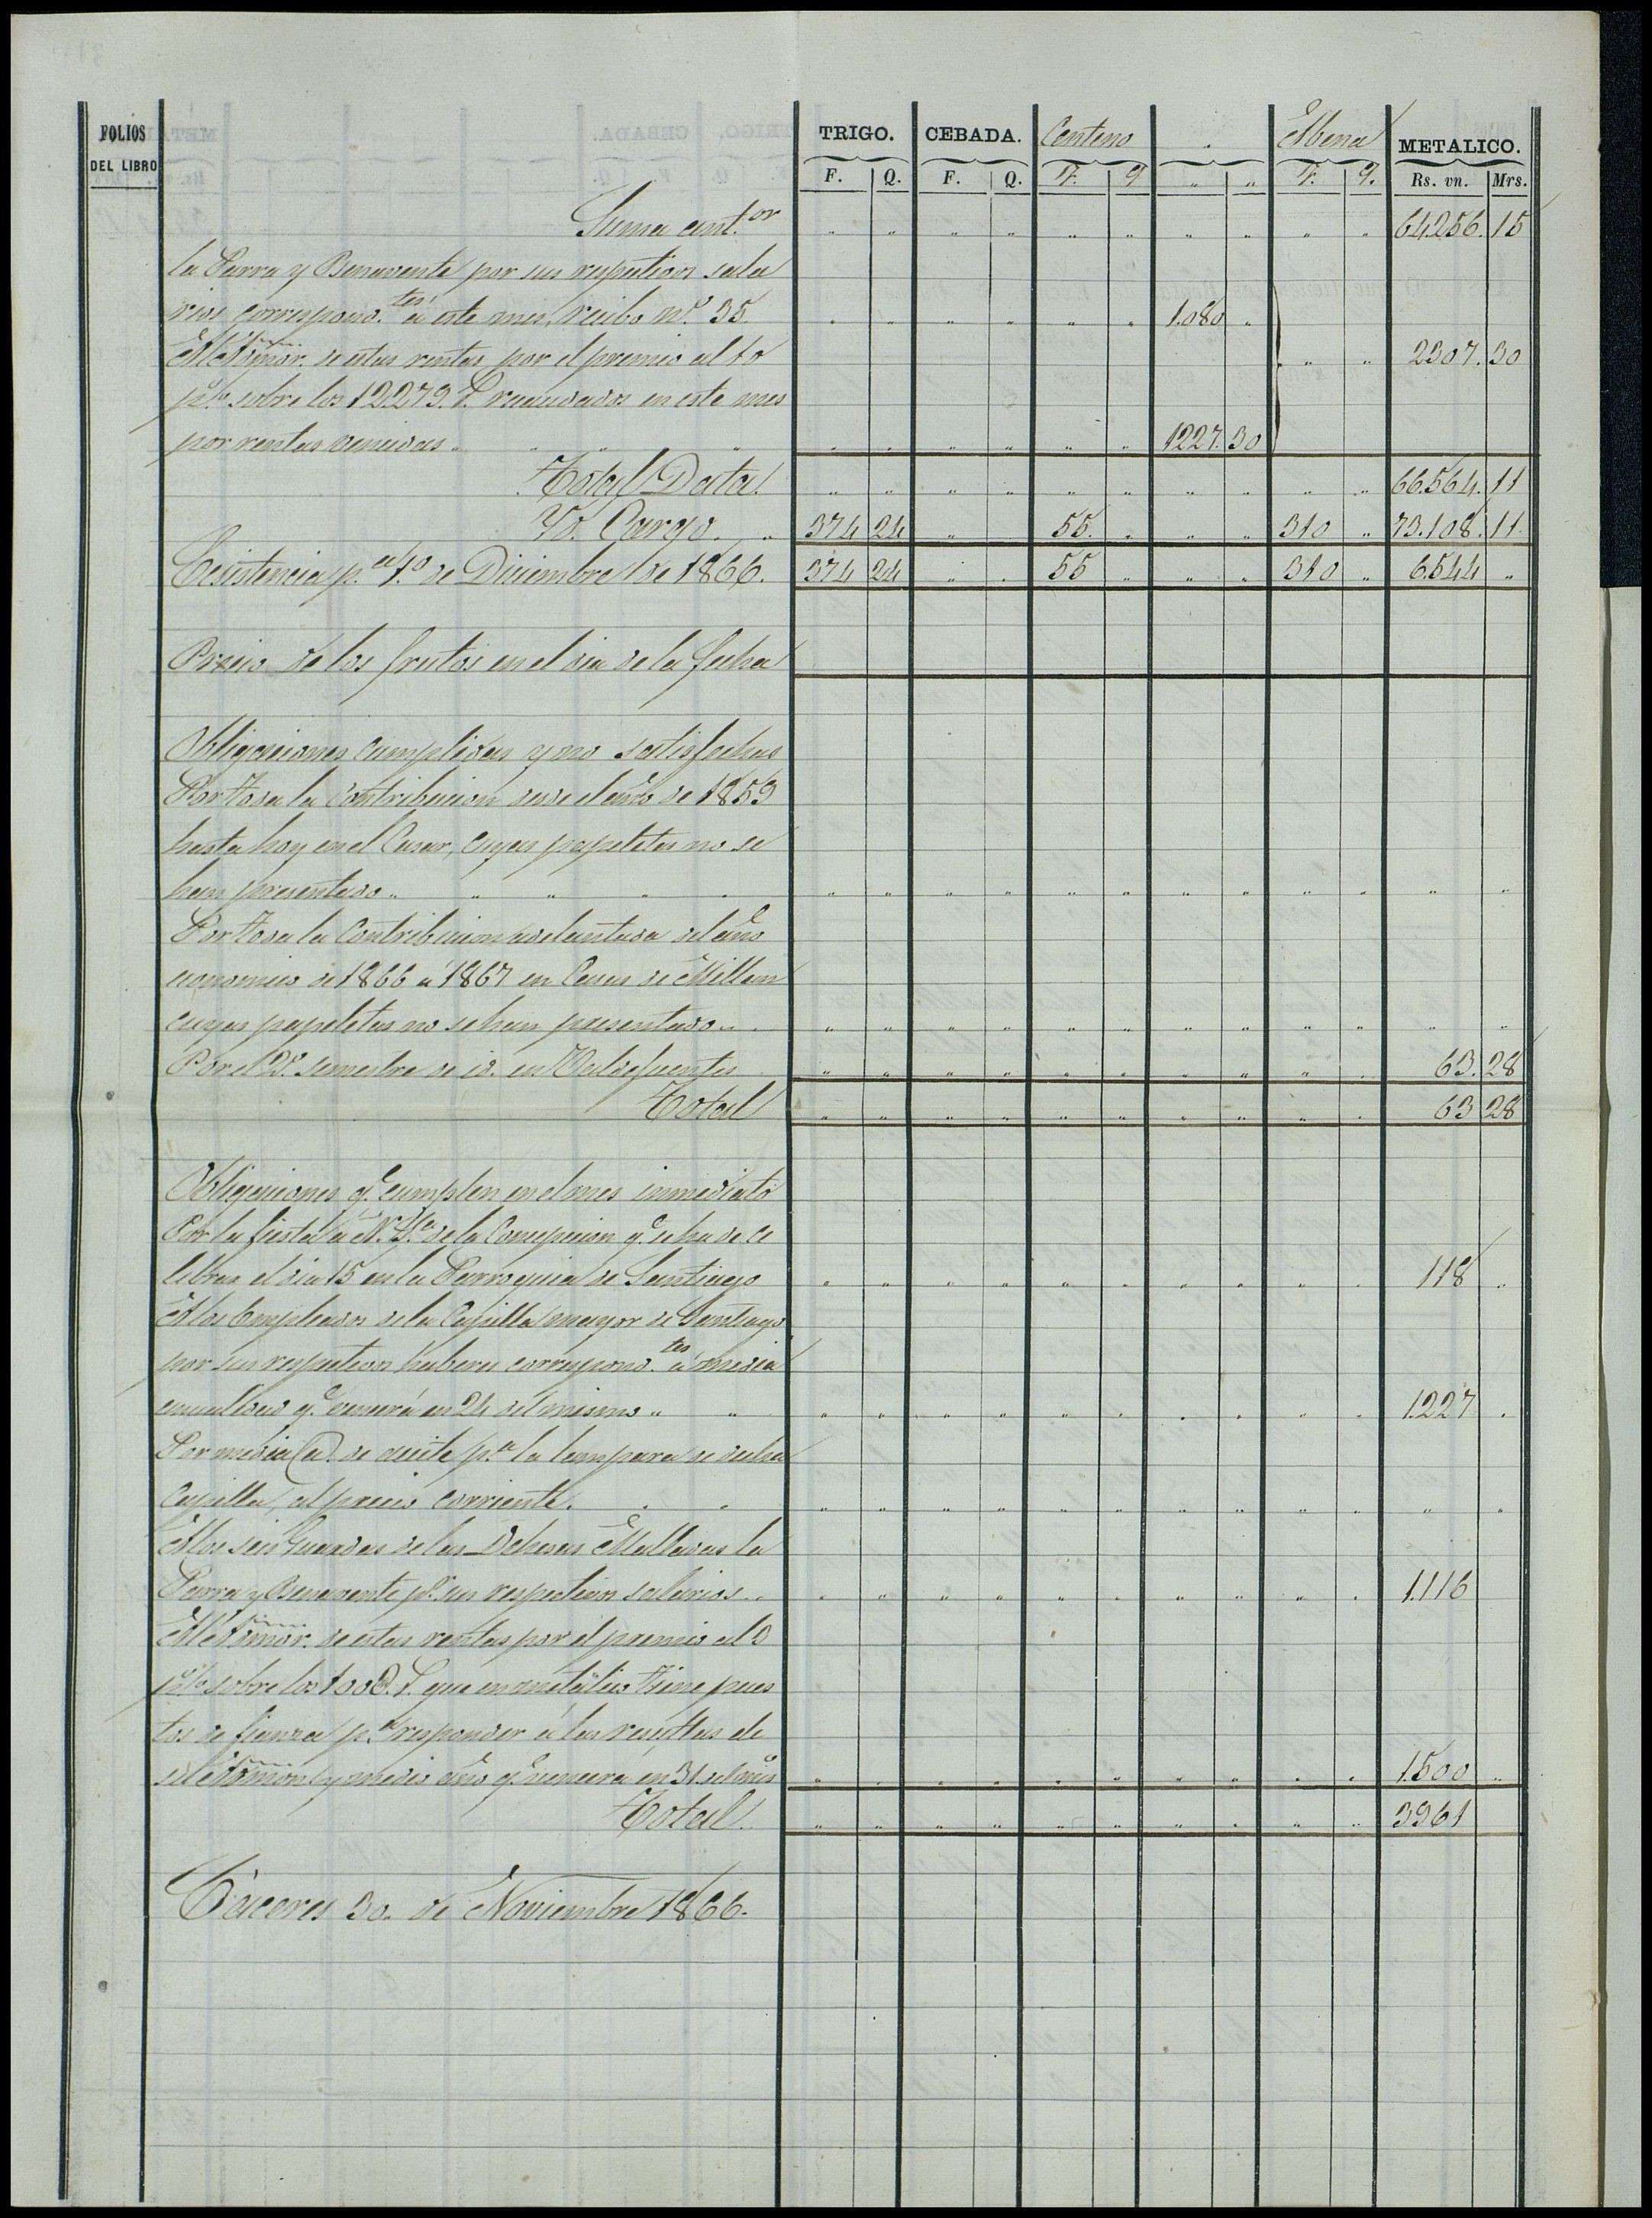 FOLIOS
DEL LIBRO
TRIGO. CEBADA. Centeno " Abena METALICO.
F. Q. F. Q. F. Q " " F. Q. Rs. vn. Mrs.
Suma ant.or " " " " " " " " " " 64.256. 15
la Parra y Benavente por sus respectivos sala
rios correspond.tes á este mes, recibo n.º 35. " " " " " " 1.080 "
Al Admor. de estas rentas por el premio al 10 " " 2307. 30
p.% sobre los 12.279. r. recaudados en este mes
por rentas vencidas " " " " " " " " " 1227. 30
Total Data. " " " " " " " " " " 66.564. 11
Yd. Cargo. " 374 24 " 55. " " " 310 " 73.108. 11.
Ecsistencia p.a 1.º de Diciembre de 1866. 374 24 " " 55 " " " 310 " 6.544 "
Precio de los frutos en el dia de la fecha
Obligaciones cumplidas y no satisfechas
Por toda la Contribucion desde el año de 1859
hasta hoy en el Casar, cuyas papeletas no se
han presentado " " " " " " " " " " " " " " " "
Por toda la Contribucion adelantada del año
economico de 1866 á 1867 en Casas de Millan
cuyas papeletas no se han presentado " " " " " " " " " " " " "
Por el 2.º semestre de id. en Valdefuentes " " " " " " " " " " 63. 28
Total " " " " " " " " " " 63 28
Obligaciones q.e cumplen en el mes inmediato
Por la fiesta á N.ª S.ra de la Concepcion q.e se ha de ce
lebrar el dia 15 en la Parroquia de Santiago " " " " " " " " " " 118 "
A los Empleados de la Capilla mayor de Santiago
por sus respectivos haberes correspond.tes á media
anualidad q.e vencerá en 24 del mismo " " " " " " " " " " " " 1.227 "
Por media @. de aceite p.a la lampara de dicha
Capilla, al precio corriente. " " " " " " " " " " " " " "
A los seis Guardas de las Dehesas Malladas la
Parra y Benavente p.r sus respectivos salarios " " " " " " " " " " 1.116
Al Admor. de estas rentas por el premio al 3
p.% sobre los 100@. r. que en metálico tiene pues
tos de fianza p.a responder á las resultas de
su Admon. y medio año q.e vencera en 31 del mis " " " " " " " " " " 1.500 "
Total. " " " " " " " " " " 3961
Cáceres 30. de Noviembre 1866.